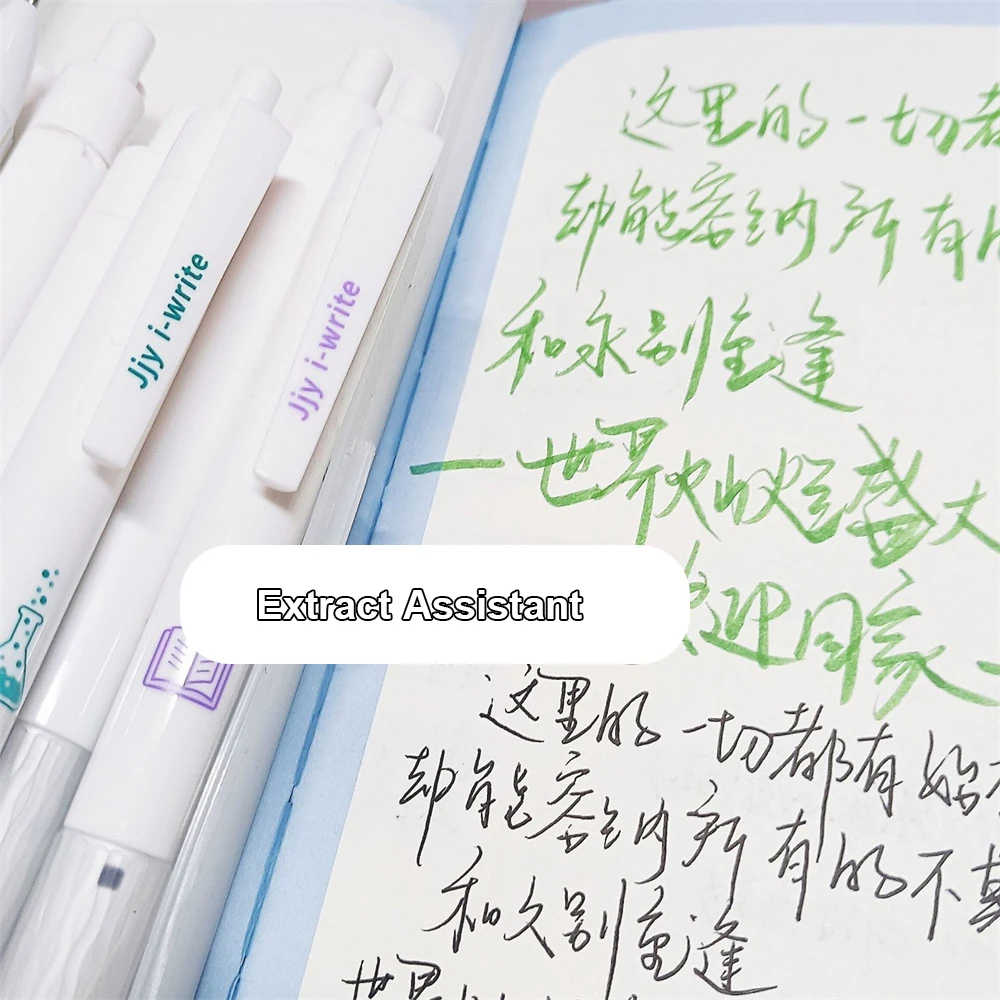 Jjy i-write
Jjy i-write
这里的一切
却能容纳所有
和永别重逢
一世界灿烂盛大
迎回家
Extract Assistant
这里的一切都有始
却能容纳所有的不
和久别重逢
世界